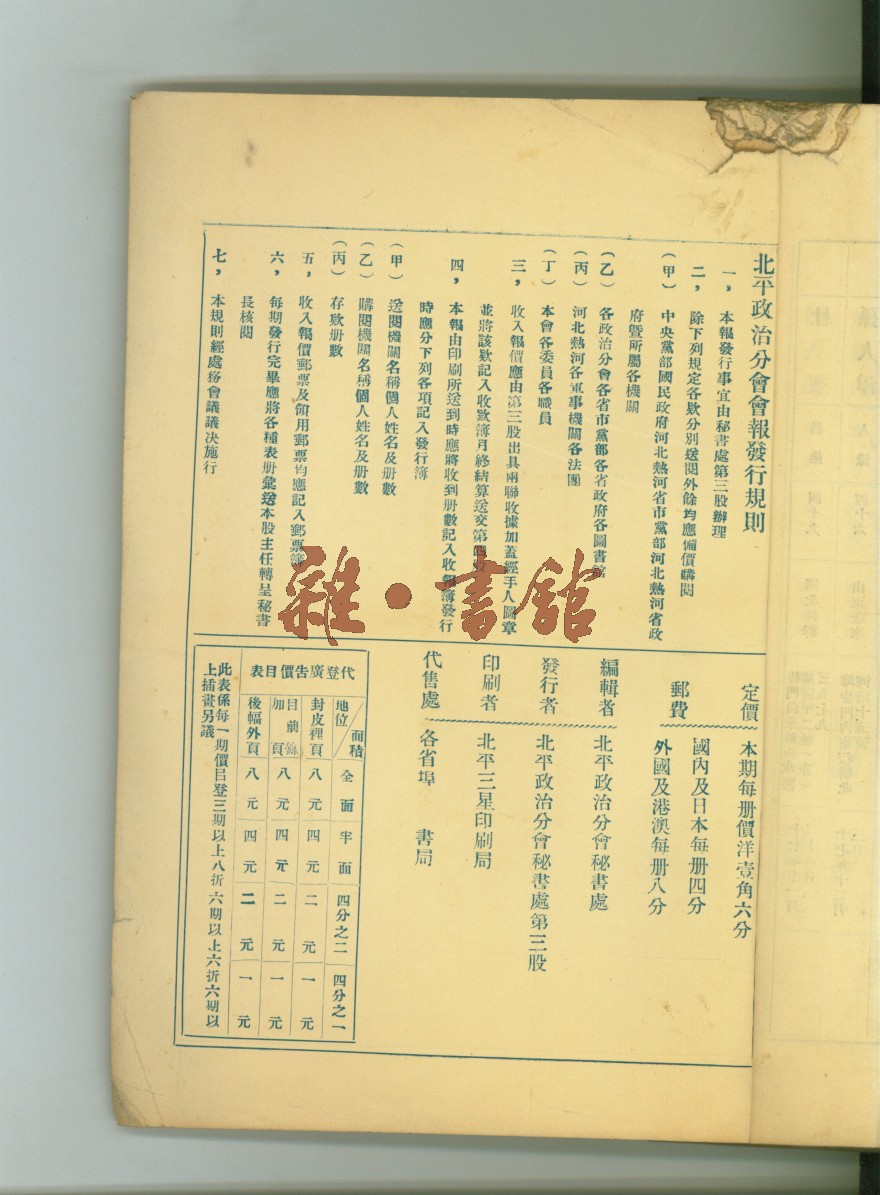 北平政治分會會報發行規則
一，本報發行事宜由秘書處第三股辦理
二，除下列規定各欵分別送閱外餘均應備價購閱
（甲）中央黨部國民政府河北熱河省市黨部河北熱河省政
府曁所屬各機關
（乙）各政治分會各省市黨部各省政府各圖書館
（丙）河北熱河各軍事機關各法團
（丁）本會各委員各職員
三，收入報價應由第三股出具兩聯收據加蓋經手人圖章
並將該欵記入收欵簿月終結算送交第
四，本報由印刷所送到時應將收到册數記入收報簿發行
時應分下列各項記入發行簿
（甲）送閱機關名稱個人姓名及册數
（乙）購閱機關名稱個人姓名及册數
（丙）存欵册數
五，收入報價郵票及領用郵票均應記入郵票簿
六，每期發行完畢應將各種表册彙送本股主任轉呈秘書
長核閱
七，本規則經處務會議議决施行
定價 本期每册價洋壹角六分
郵費 國內及日本每册四分
外國及港澳每册八分
編輯者 北平政治分會秘書處
發行者 北平政治分會秘書處第三股
印刷者 北平三星印刷局
代售處 各省埠 書局
代登廣告價目表
地位 面積 全面 半面 四分之二 四分之一
封皮裡頁 八元 四元 二元 一元
目前錄加頁 八元 四元 二元 一元
後幅外頁 八元 四元 二元 一元
此表係每一期價目登三期以上八折六期以上六折六期以
上插畫另議
雜·書舘